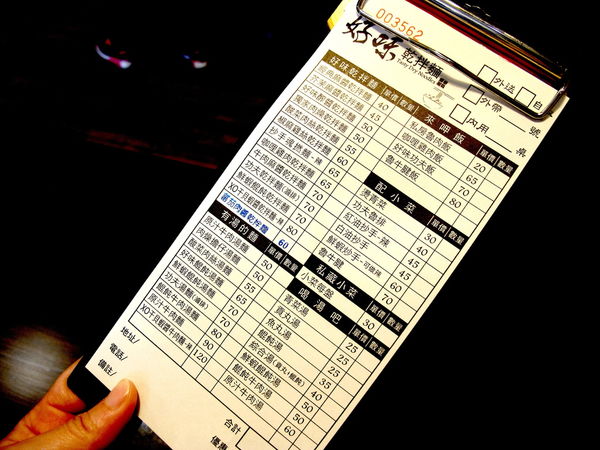 003562
好味 乾拌麵
Tasty Dry Noodles
外送 自
外帶 號
內用 桌
好味乾拌麵 單價 數量
經典麻醬乾拌麵 40
芥末麻醬乾拌麵 45
好味 乾拌麵
獨家肉燥乾拌麵 50
酸菜肉絲乾拌麵 50
椒麻雞絲乾拌麵 55
抄手乾拌麵-辣 60
咖哩雞肉乾拌麵
牛肉麻醬乾拌麵 65
功夫乾拌麵(滷排) 70
鮮蝦餛飩乾拌麵 70
XO干貝蝦醬乾拌麵-辣 80
蕃茄肉醬乾拌麵 60
有湯的麵 單價 數量
原汁牛肉湯麵 50
肉燥擔仔湯麵 50
酸菜肉絲湯麵 55
好味餛飩湯麵 65
鮮蝦餛飩湯麵 70
功夫湯麵(滷排) 70
餛飩牛肉湯麵 80
原汁牛肉麵 90
XO干貝蝦醬牛肉麵-辣 120
地址/
電話/
備註/
來呷飯 單價 數量
私房魯肉飯 20
咖哩雞飯 65
好味功夫飯 70
魯牛腱飯 80
配小菜 單價 數量
燙青菜 30
功夫魯排 40
紅油抄手-辣 45
白油抄手 45
鮮蝦抄手-可做辣 60
魯牛腱 70
私藏小菜 單價 數量
小菜每盤 30
喝湯吧 單價 數量
青菜湯 25
貢丸湯 25
魚丸湯
餛飩湯 35
綜合湯(貢丸+餛飩) 40
鮮蝦餛飩湯 50
餛飩牛肉湯
原汁牛肉湯
合計
優惠